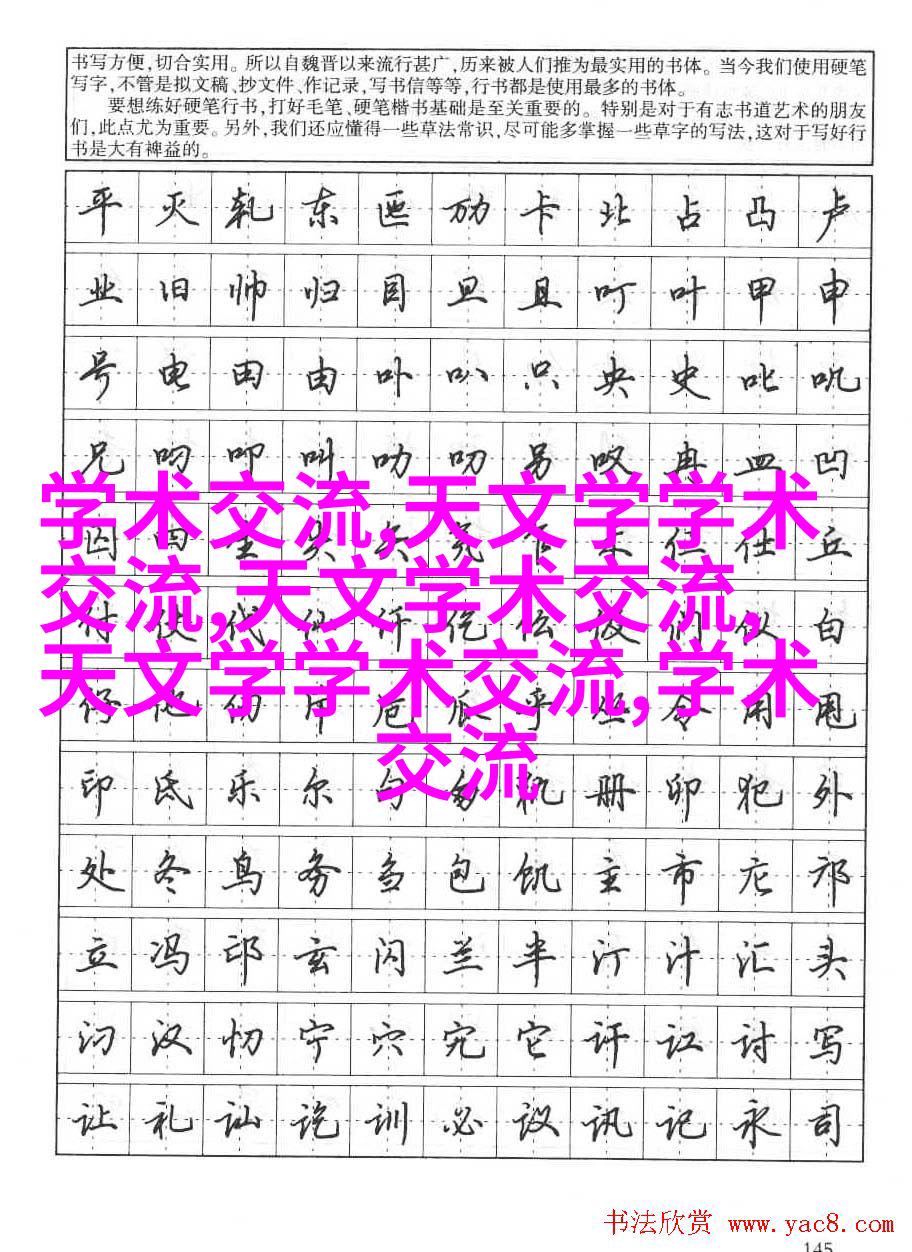 书写方便，切合实用。所以自魏晋以来流行甚广，历来被人们推为最实用的书体。当今我们使用硬笔
写字，不管是拟文稿、抄文件、作记录，写书信等等，行书都是使用最多的书体。
要想练好硬笔行书，打好毛笔、硬笔楷书基础是至关重要的。特别是对于有志书道艺术的朋友
们，此点尤为重要。另外，我们还应懂得一些草法常识，尽可能多掌握一些草字的写法，这对于写好行
书是大有裨益的。
平灭轧东匝劢卡北占凸卢
业旧帅归目旦且叮叶甲申
号电田由卟叭只央史叱叽
兄叼叩叫叻叨另叹冉皿凹
囚四生失矢乍仨仕丘
付仗代仟仡伋们仪白
他仞斥卮瓜乎丛令用甩
印氐乐尔句匆册卯犯外
处冬鸟务刍包饥主市庀邝
立冯邙玄闪兰半汀汁汇头
汈汉忉宁穴宄它讦讧讨写
让礼讪讫训必议讯记永司
学术交流,天文学学术
交流,天文学术交流,
天文学学术交流,学术
交流
书法欣赏 www.yac8.com
145